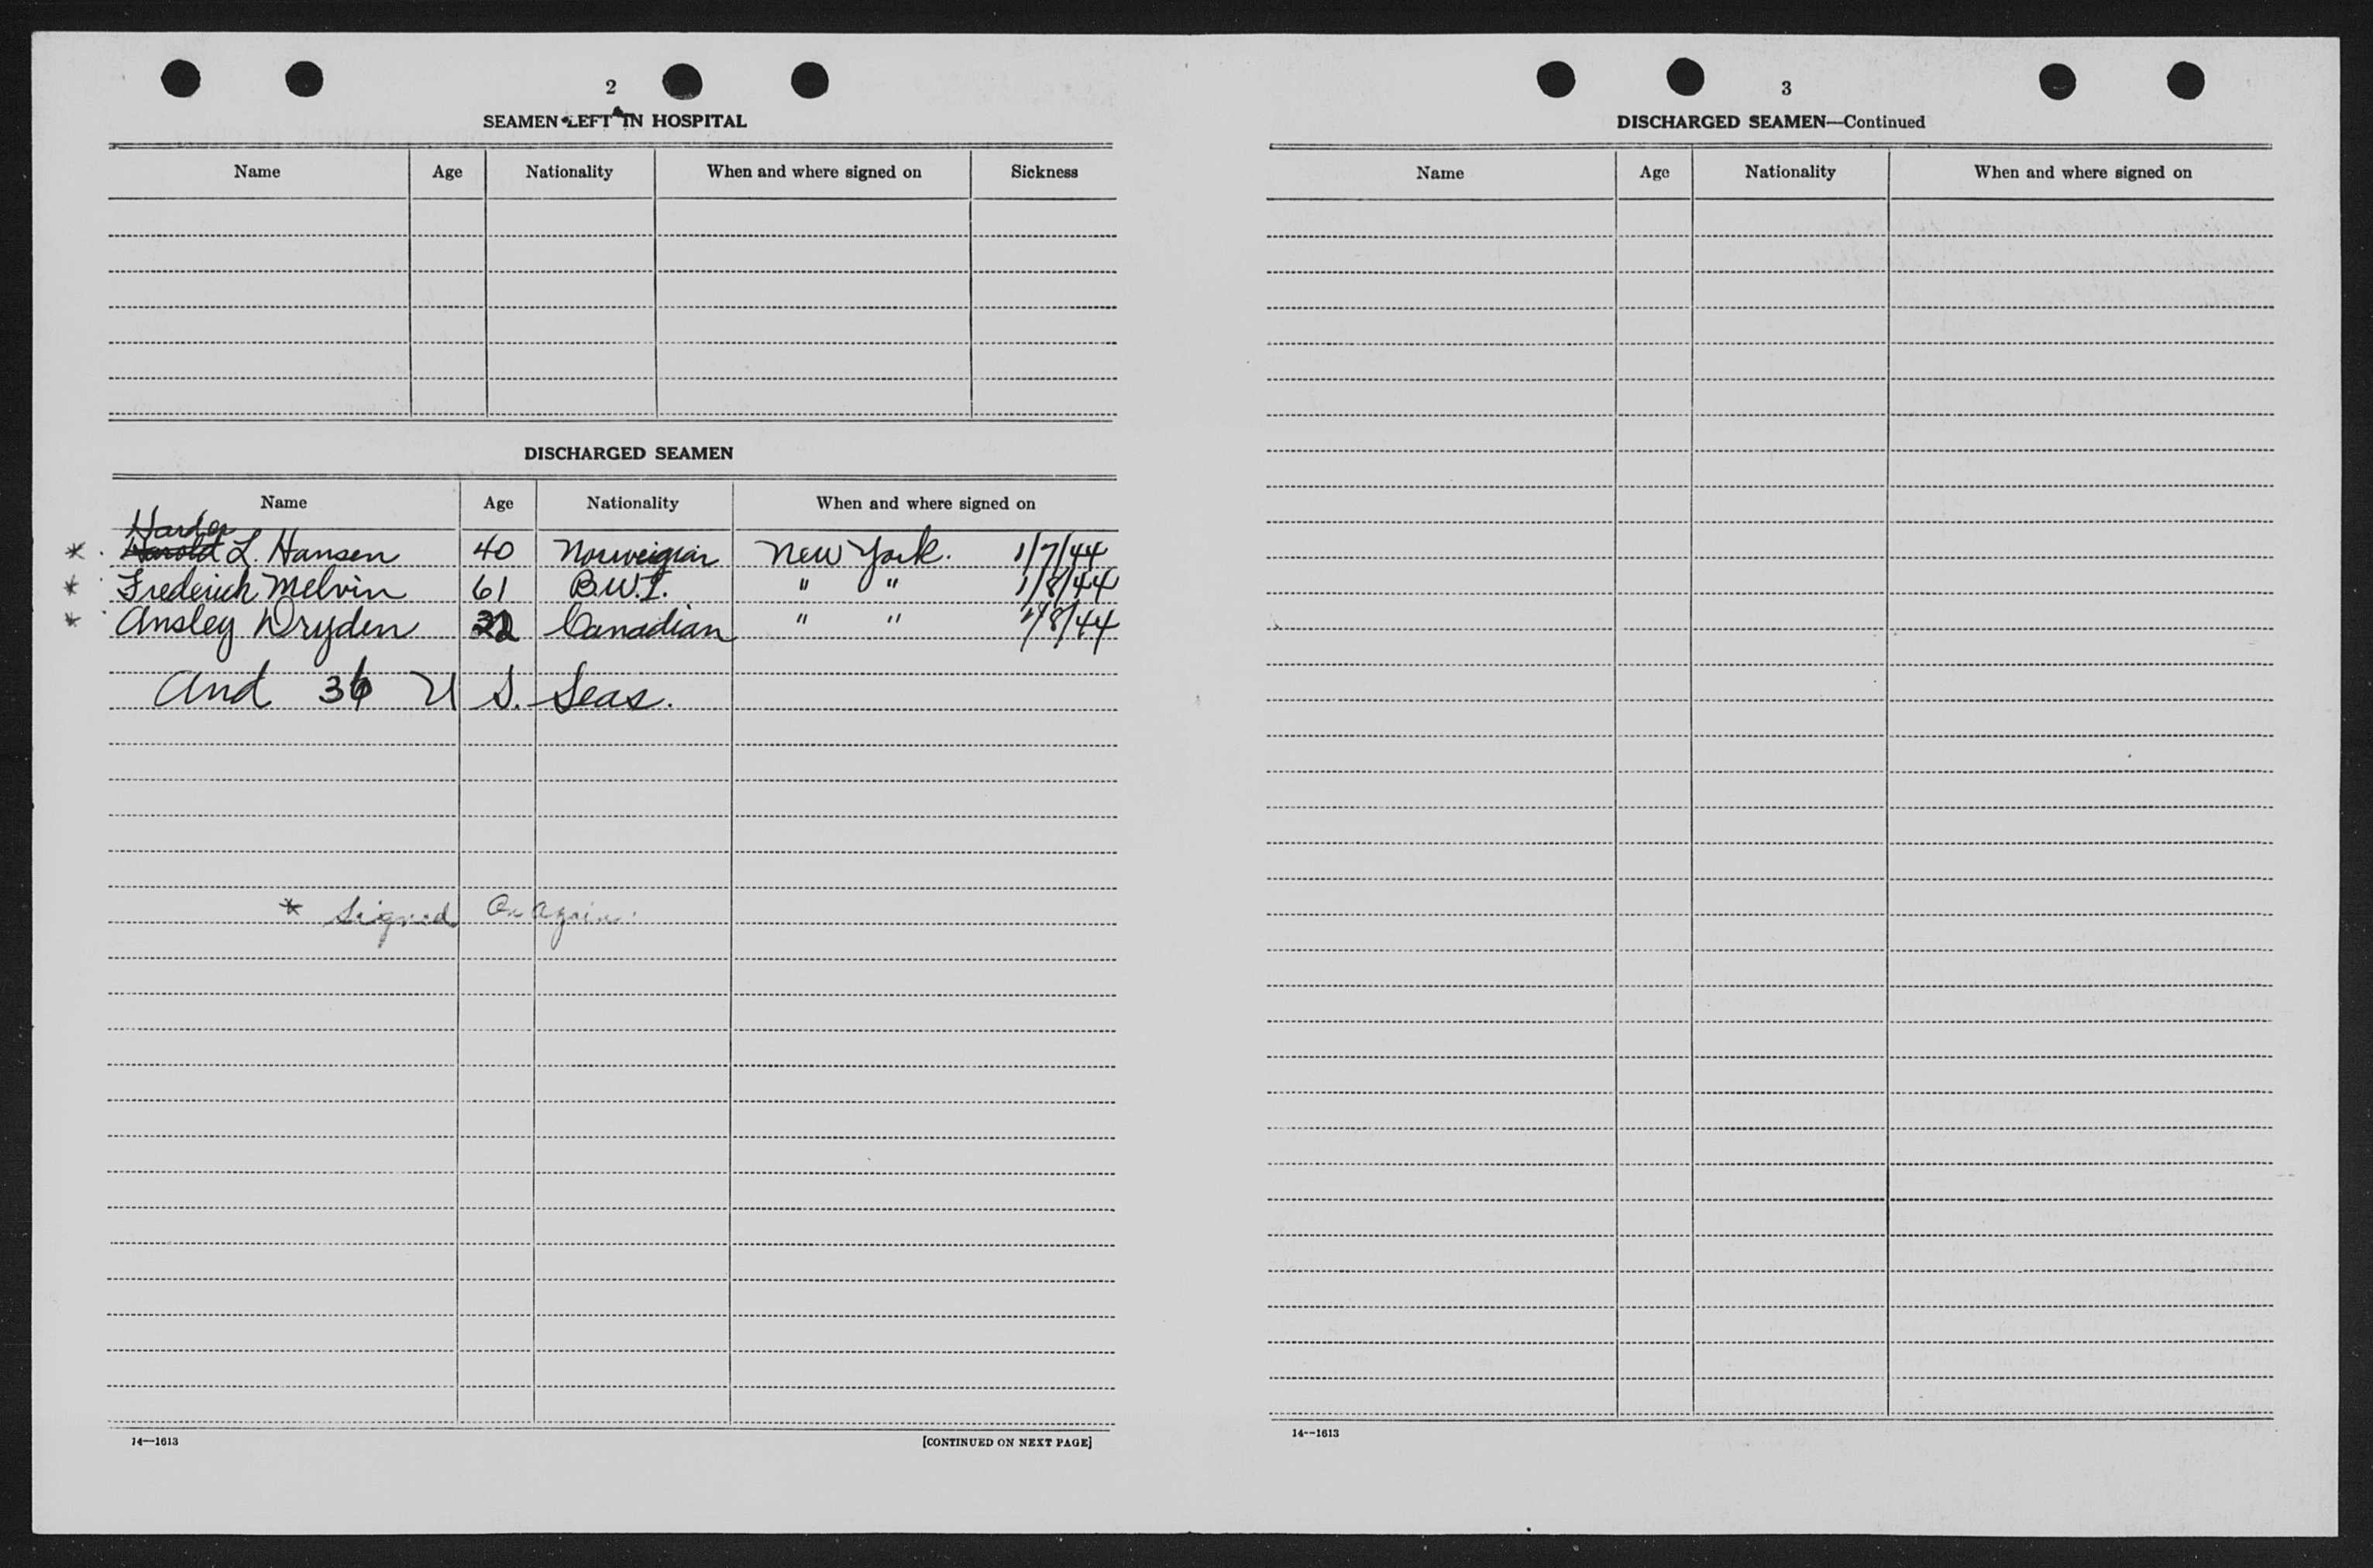 2
SEAMEN LEFT IN HOSPITAL
Name Age Nationality When and where signed on Sickness
DISCHARGED SEAMEN
Name Age Nationality When and where signed on
Harder
* Harold L. Hansen 40 Norweigian New York. 1/7/44
* Frederick Melvin 61 B.W.I. " " 1/8/44
* Ansley Dryden Canadian " " 1/8/44
And 36 U S. Seas.
* Signed On Again.
14—1613 [CONTINUED ON NEXT PAGE]
3
DISCHARGED SEAMEN—Continued
Name Age Nationality When and where signed on
14--1613